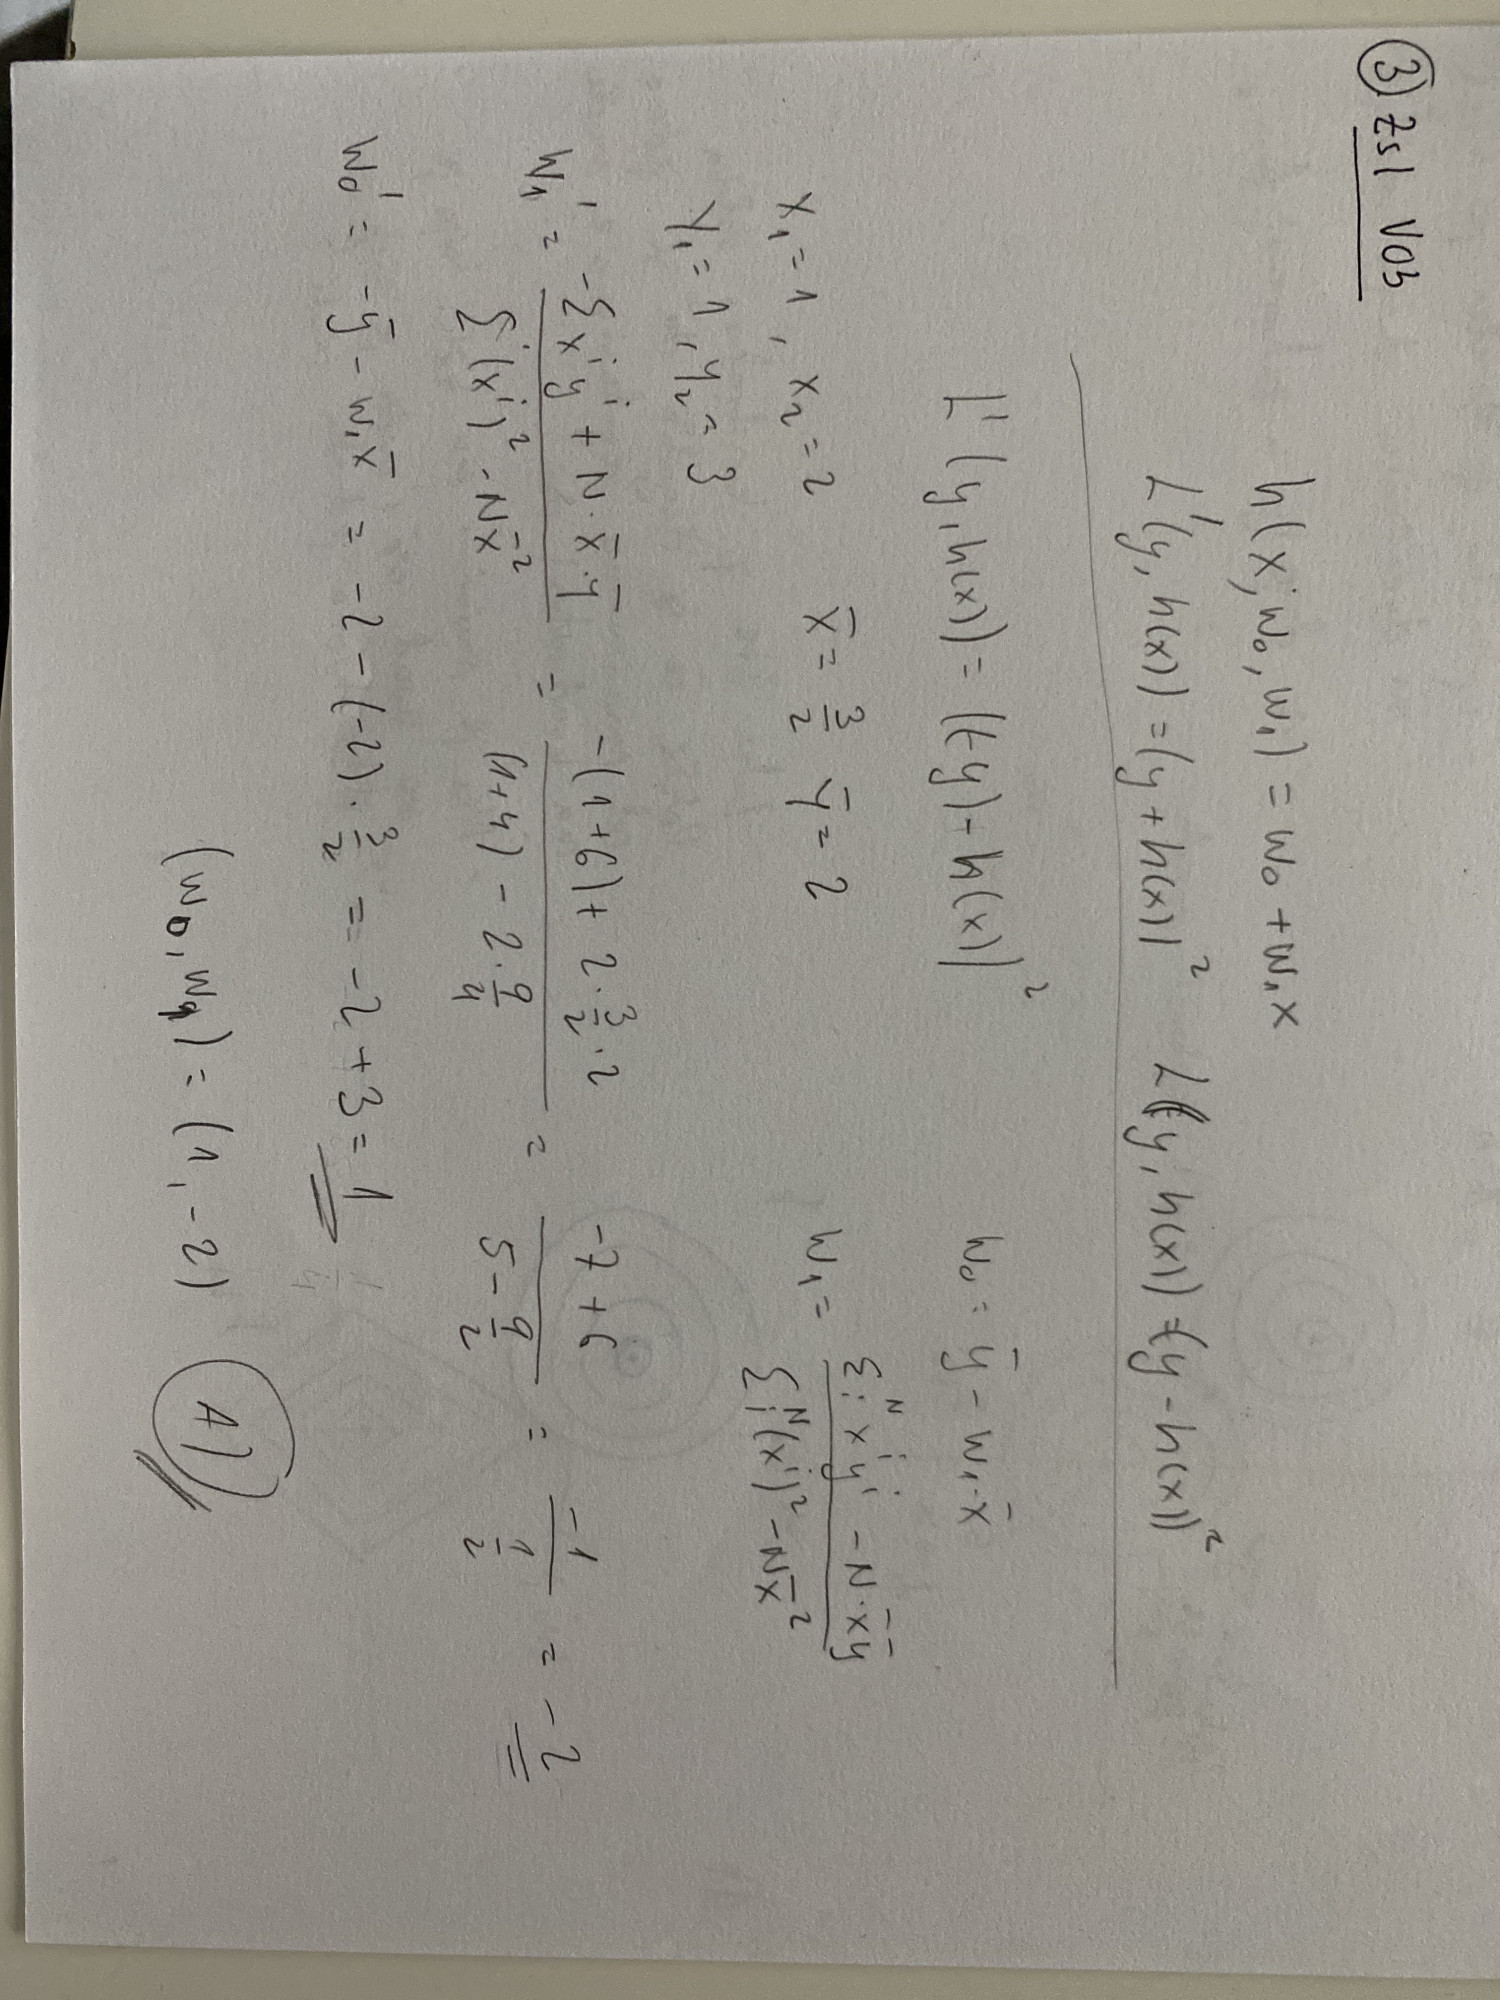 ③ ZSI V03
h(x; w₀, w₁) = w₀ + w₁x
L'(y, h(x)) = (y + h(x))² L(y, h(x)) = (y - h(x))²
L'(y, h(x)) = ((-y) - h(x))² w₀ = ȳ - w₁·x̄
x₁ = 1, x₂ = 2 x̄ = 3/2 ȳ = 2 w₁ = (Σᵢᴺ xⁱyⁱ - N·x̄ȳ) / (Σᵢᴺ(xⁱ)² - Nx̄²)
y₁ = 1, y₂ = 3
w₁' = (-Σxⁱyⁱ + N·x̄·ȳ) / (Σ(xⁱ)² - Nx̄²) = (-(1+6) + 2·3/2·2) / ((1+4) - 2·9/4) = (-7+6) / (5 - 9/2) = -1 / (1/2) = -2
w₀' = -ȳ - w₁x̄ = -2 - (-2)·3/2 = -2 + 3 = 1
(w₀, w₁) = (1, -2) A)